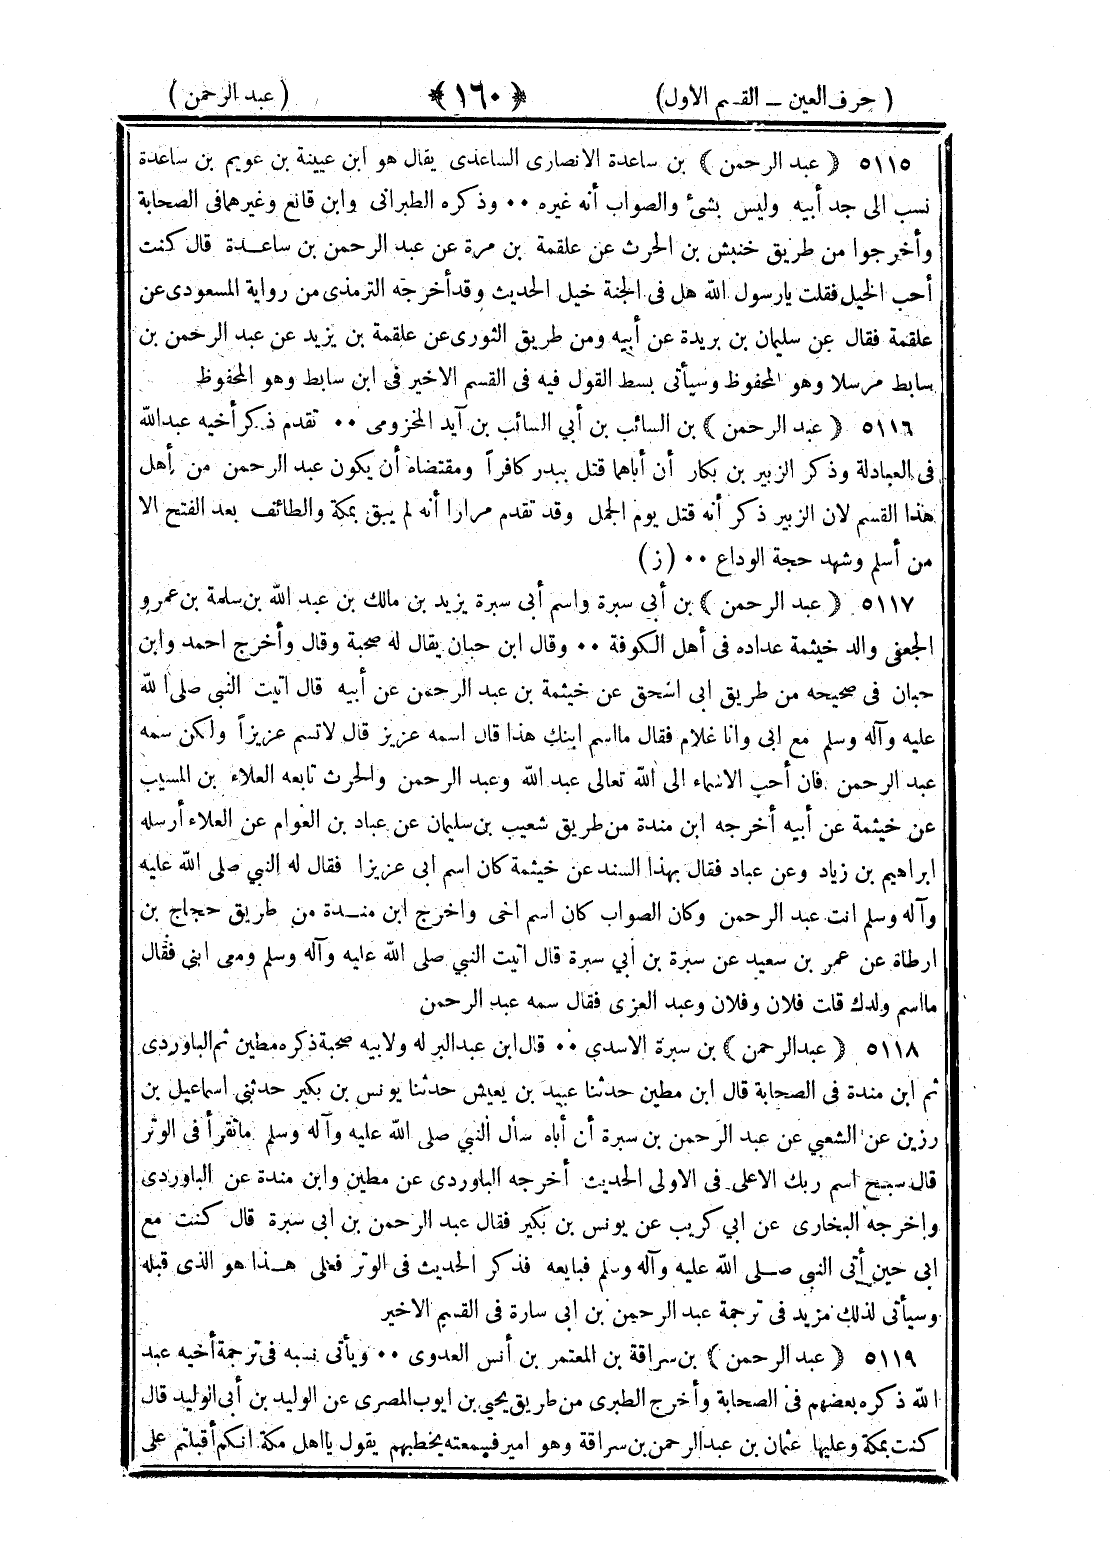 ( حرف العين – القسم الاول) ﴿١٦٠﴾ ( عبد الرحمن )
٥١١٥ ﴿ عبد الرحمن ﴾ بن ساعدة الانصارى الساعدى يقال هو ابن عيينة بن عويم بن ساعدة
نسب الى جد أبيه وليس بشئ والصواب أنه غيره ٠٠ وذكره الطبرانى وابن قانع وغيرهما فى الصحابة
وأخرجوا من طريق خنبش بن الحرث عن علقمة بن مرة عن عبد الرحمن بن ساعدة قال كنت
أحب الخيل فقلت يارسول الله هل فى الجنة خيل الحديث وقد أخرجه الترمذى من رواية المسعودى عن
علقمة فقال عن سليمان بن بريدة عن أبيه ومن طريق الثورى عن علقمة بن يزيد عن عبد الرحمن بن
سابط مرسلا وهو المحفوظ وسيأتى بسط القول فيه فى القسم الاخير فى ابن سابط وهو المحفوظ
٥١١٦ ﴿ عبد الرحمن ﴾ بن السائب بن أبي السائب بن آيد المخزومى ٠٠ تقدم ذكر أخيه عبدالله
فى العبادلة وذكر الزبير بن بكار أن أباهما قتل ببدر كافراً ومقتضاه أن يكون عبد الرحمن من أهل
هذا القسم لان الزبير ذكر أنه قتل يوم الجمل وقد تقدم مرارا أنه لم يبق بمكة والطائف بعد الفتح الا
من أسلم وشهد حجة الوداع ٠٠ (ز)
٥١١٧ ﴿ عبد الرحمن ﴾ بن أبي سبرة واسم أبى سبرة يزيد بن مالك بن عبد الله بن سلمة بن عمرو
الجعفى والد خيثمة عداده فى أهل الكوفة ٠٠ وقال ابن حبان يقال له صحبة وقال وأخرج احمد وابن
حبان فى صحيحه من طريق ابى اسحق عن خيثمة بن عبد الرحمن عن أبيه قال اتيت النبي صلى الله
عليه وآله وسلم مع ابى وانا غلام فقال مااسم ابنك هذا قال اسمه عزيز قال لاتسم عزيزاً ولكن سمه
عبد الرحمن فان أحب الاسماء الى الله تعالى عبد الله وعبد الرحمن والحرث تابعه العلاء بن المسيب
عن خيثمة عن أبيه أخرجه ابن مندة من طريق شعيب بن سليمان عن عباد بن العوام عن العلاء أرسله
ابراهيم بن زياد وعن عباد فقال بهذا السند عن خيثمة كان اسم ابى عزيزا فقال له النبي صلى الله عليه
وآله وسلم انت عبد الرحمن وكان الصواب كان اسم اخى واخرج ابن مندة من طريق حجاج بن
ارطاة عن عمر بن سعيد عن سبرة بن أبي سبرة قال اتيت النبي صلى الله عليه وآله وسلم ومعى ابنى فقال
مااسم ولدك قلت فلان وفلان وعبد العزى فقال سمه عبد الرحمن
٥١١٨ ﴿ عبدالرحمن ﴾ بن سبرة الاسدي ٠٠ قال ابن عبدالبر له ولابيه صحبة ذكره مطين ثم الباوردى
ثم ابن مندة فى الصحابة قال ابن مطين حدثنا عبيد بن يعيش حدثنا يونس بن بكير حدثني اسماعيل بن
رزين عن الشعبي عن عبد الرحمن بن سبرة أن أباه سأل النبي صلى الله عليه وآله وسلم ماتقرأ فى الوتر
قال سبح اسم ربك الاعلى فى الاولى الحديث أخرجه الباوردى عن مطين وابن مندة عن الباوردى
واخرجه البخارى عن ابي كريب عن يونس بن بكير فقال عبد الرحمن بن ابى سبرة قال كنت مع
ابى حين أتى النبي صلى الله عليه وآله وسلم فبايعه فذكر الحديث فى الوتر فعلى هذا هو الذى قبله
وسيأتى لذلك مزيد فى ترجمة عبد الرحمن بن ابى سارة فى القسم الاخير
٥١١٩ ﴿ عبد الرحمن ﴾ بن سراقة بن المعتمر بن أنس العدوى ٠٠ ويأتى نسبه فى ترجمة أخيه عبد
الله ذكره بعضهم فى الصحابة وأخرج الطبرى من طريق يحيى بن ايوب المصرى عن الوليد بن أبى الوليد قال
كنت بمكة وعليها عثمان بن عبدالرحمن بن سراقة وهو امير فسمعته يخطبهم يقول يااهل مكة انكم أقبلتم على